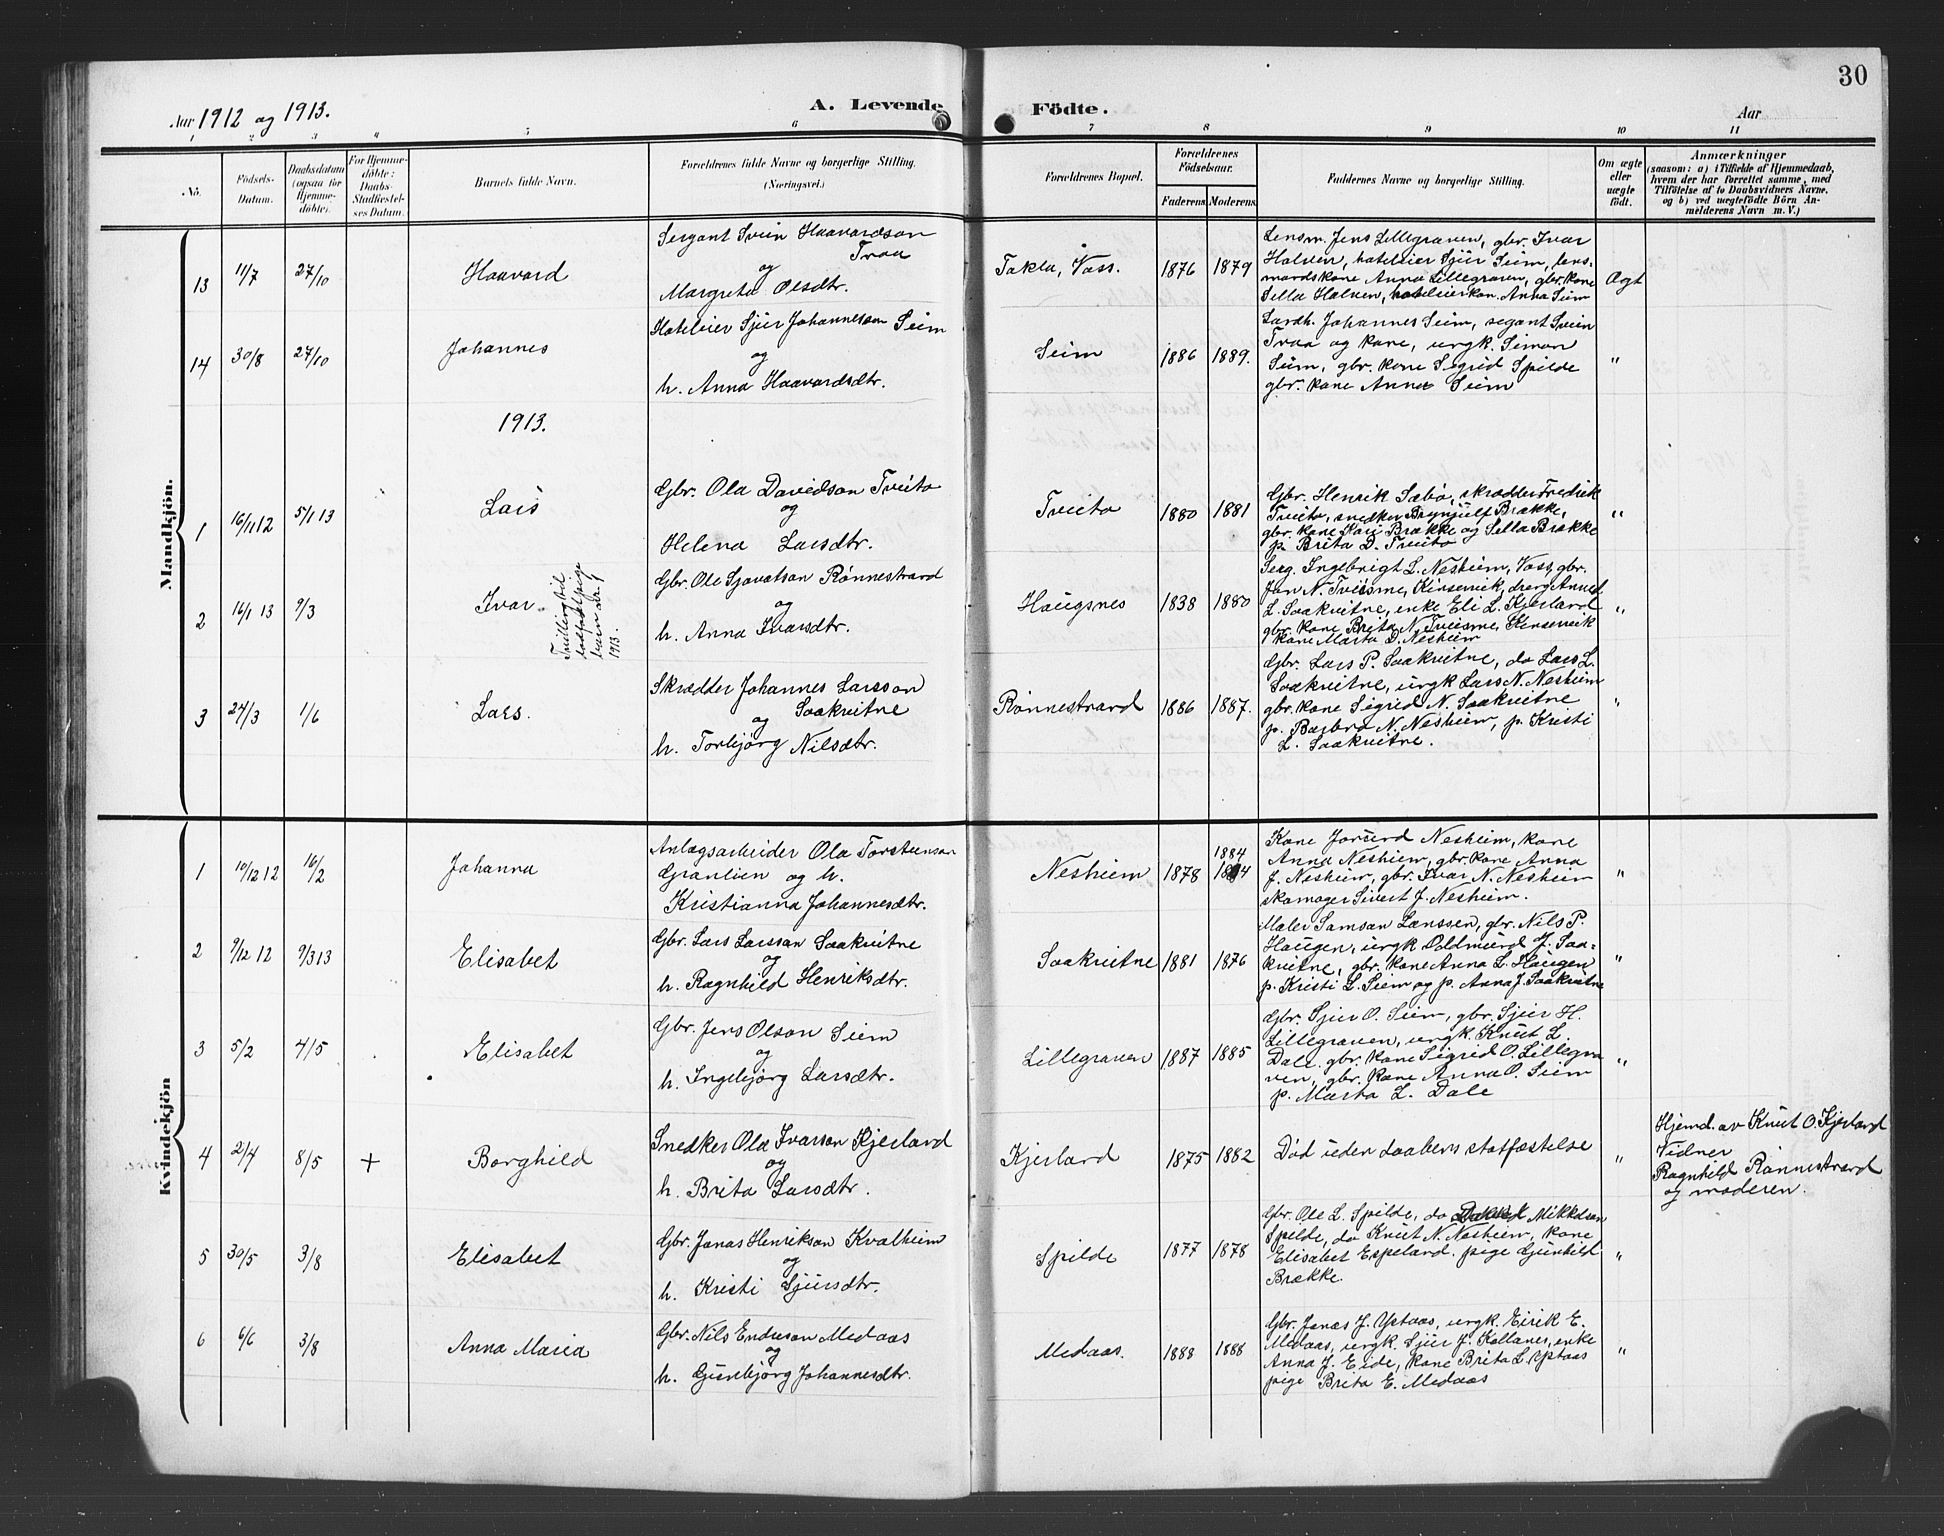 30
Aar 1912 og 1913.
A. Levende Födte.
Aar
1 2 3 4 5 6 7 8 9 10 11
No.
Födsels-Datum.
Daabsdatum (ogsaa for Hjemmedöbte).
For Hjemmedöbte: Daabs-Stadfæstelses Datum.
Barnets fulde Navn.
Forældrenes fulde Navne og borgerlige Stilling. (Næringsvei.)
Forældrenes Bopæl.
Forældrenes Födselsaar.
Faderens Moderens
Faddernes Navne og borgerlige Stilling.
Om ægte eller uægte födt.
Anmærkninger
(saasom: a) i Tilfælde af Hjemmedaab,
hvem der har forrettet samme, med
Tilföielse af to Daabsvidners Navne,
og b) ved uægtefödte Börn An-
melderens Navn m. V.)
Mandkjön.
13 11/7 27/10 Haavard
Sergant Svein Haavardson
Traa
og
Margreta Olsdtr.
Takla, Voss. 1876 1879
Lensm. Jens Lillegraven, gbr. Ivar
Halven, hoteleier Sjur Seim, lens
mandskone Anna Lillegraven, gbr. kone
Sella Halven, hoteleierkon. Anna Seim
Ægt
14 30/8 27/10 Johannes
Hoteleier Sjur Johannesson Seim
og
h. Anna Haavardsdtr.
Seim 1886 1889.
Johannes Seim, segant Svein
Traa og kone, ungk. Simon
Seim, gbr. kone Sigrid Spilde
gbr. kone Anna Seim
"
1913.
1 16/11 12 5/1 13 Lars
Gbr. Ola Davidson Tveito
og
Helena Larsdtr.
Tveito 1880 1881
Gbr. Henrik Sæbø, skrædder Fredrik
Tveito, snedker Brynjulf Brække,
gbr. kone Kari Brække og Sella Brække
p. Brita D. Tveito
"
2 16/1 13 9/3 Ivar
Tvilling til
dødfødt pige
barn nr. 1
1913.
Gbr. Ole Sjovatson Rønnestrand
og
h. Anna Ivarsdtr.
Haugsnes 1838 1880
Serg. Ingebrigt L. Nesheim, Voss, gbr.
Jon N. Tveisme, Kinservik, dreng Anved
L. Saakvitne, enke Eli L. Kjerland
gbr. kone Brita N. Tveisme, Kinservik
kone Marta D. Nesheim
"
3 24/3 1/6 Lars.
Skrædder Johannes Larsson
og Saakvitne
h. Torbjørg Nilsdtr.
Rønnestrand 1886 1887.
Gbr. Lars P. Saakvitne, do Lars L.
Saakvitne, ungk Lars N. Nesheim
gbr. kone Sigrid N. Saakvitne
p. Barbro N. Nesheim, p. Kristi
L. Saakvitne.
"
Kvindekjön
1 10/12 12 16/2 Johanna
Anlægsarbeider Ola Torsteinson
Granlien og h.
Kristianna Johannesdtr.
Nesheim 1878 1884
Kone Jorund Nesheim, kone
Anna Nesheim, gbr. kone Anna
J. Nesheim, gbr. Ivar N. Nesheim
skomager Sivert J. Nesheim.
"
2 9/12 12 9/3 13 Elisabet
Gbr. Lars Larsson Saakvitne
og
h. Ragnhild Henriksdtr.
Saakvitne 1881 1876
Maler Samson Lænssen, gbr. Nils P.
Haugen, ungk Oddmund J. Saa-
kvitne, gbr. kone Anna L. Haugen
p. Kristi L. Seim og p. Anna J. Saakvitne
"
3 5/2 4/5 Elisabet
Gbr. Jens Olson Seim
og
h. Ingebjørg Larsdtr.
Lillegraven 1887 1885
Gbr. Sjur O. Seim, gbr. Sjur H.
Lillegraven, ungk. Knut L.
Dale. gbr. kone Sigrid O. Lillegra
ven, gbr. kone Anna O. Seim
p. Marta L. Dale
"
4 2/4 8/5 + Borghild
Snedker Ola Ivarson Kjerland
og
h. Brita Larsdtr.
Kjerland 1875 1882
Død uden daabens statfæstelse
"
Hjemd. av Knut O. Kjerland
Vidner
Ragnhild Rønnestrand
og moderen.
5 30/5 3/8 Elisabet
Gbr. Jonas Henrikson Kvalheim
og
h. Kristi Sjursdtr.
Spilde 1877 1878
Gbr. Ole L. Spilde, do Mikkelson
Spilde, do Knut N. Nesheim, kone
Elisabet Espeland. pige Gunhild
Brække.
"
6 6/6 3/8 Anna Maria
Gbr. Nils Endreson Medaas
og
h. Gunnbjørg Johannesdtr.
Medaas. 1888 1888
Gbr. Jonas J. Opstaas, ungk. Eirik E.
Medaas, ungk. Sjur J. Kollanes, enke
Anna J. Eide, kone Brita L. Opstaas
pige Brita E. Medaas
"